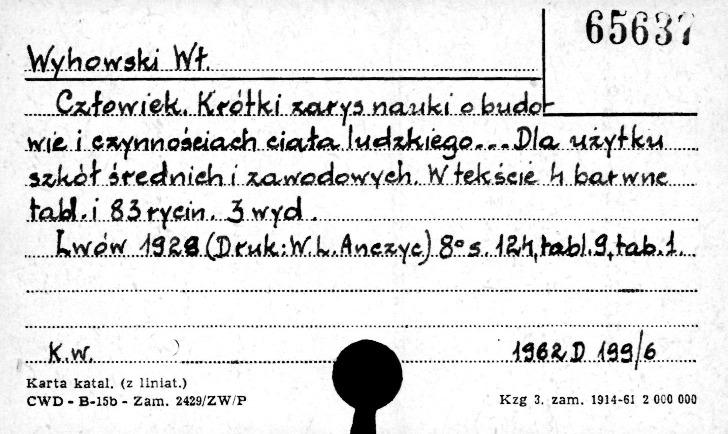 65637
Wyhowski Wł.
Człowiek. Krótki zarys nauki o budo-
wie i czynnościach ciała ludzkiego... Dla użytku
szkół średnich i zawodowych. W tekście 4 barwne
tabl. i 83 rycin. 3 wyd.
Lwów 1928 (Druk: W.L. Anczyc) 8° s. 124, tabl. 9, tab. 1.
K.w. 1962 D 199/6
Karta katal. (z liniat.)
CWD - B-15b - Zam. 2429/ZW/P Kzg 3. zam. 1914-61 2 000 000